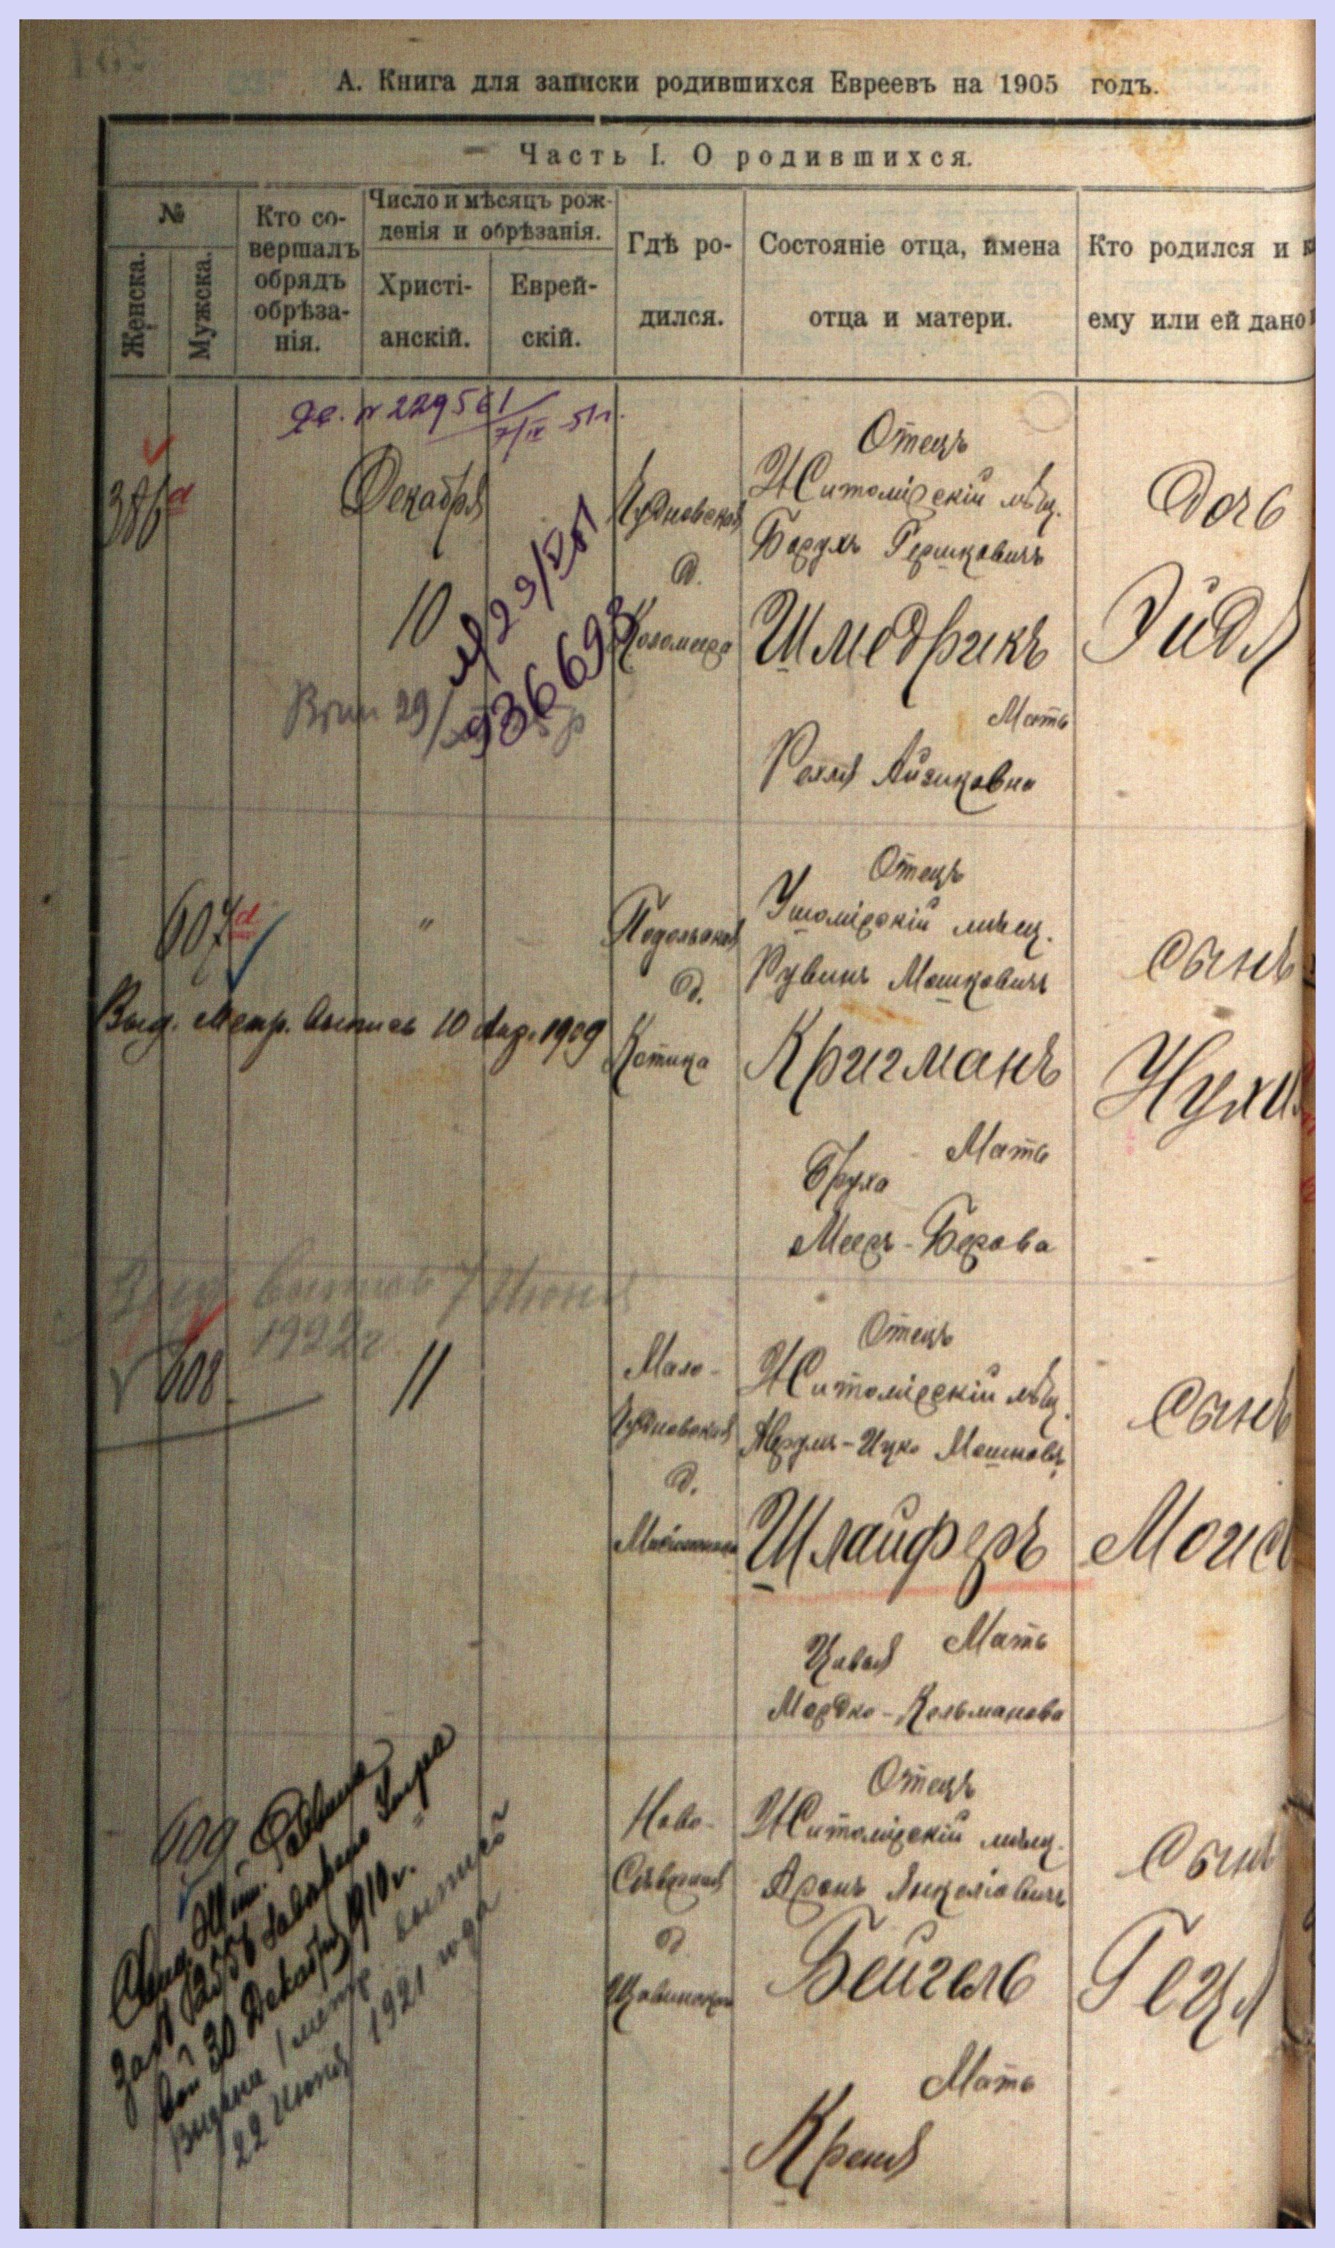 А. Книга для записки родившихся Евреевъ на 1905 годъ.
Часть I. О родившихся.
№
Женска.
Мужска.
Кто со-
вершалъ
обрядъ
обрѣза-
нія.
Число и мѣсяцъ рож-
денія и обрѣзанія.
Христі-
анскій.
Еврей-
скій.
Гдѣ ро-
дился.
Состояніе отца, имена
отца и матери.
Кто родился и
ему или ей дано
№ 229561
7/IV 51г.
386
Декабря
10
29/
936693
Чудновская
д.
Коломеера
Отецъ
Житомірскій мѣщ.
Барухъ Гершковичъ
Шмедрикъ
Мать
Рехля Айзиковна
Дочь
Эйдл
607
"
Выд. метр. выпись 10 Апр. 1909
Подольская
д.
Котика
Отецъ
Ушомірскій мѣщ.
Рувинъ Мошковичъ
Кригманъ
Мать
Бруха
Мееръ-Берова
Сынъ
Нухи
Выд. выпись 7 Июня
1922г.
608
11
Мало-
Чудновская
д.
Отецъ
Житомірскій мѣщ.
Аврумъ-Ицко Мошковъ
Шлайферъ
Мать
Цивья
Мордко-Кельманова
Сынъ
Моис
609
30 Декабря 1910 г.
Выдана метр. выпись
22 Июня 1921 года
Ново-
Сѣверная
д.
Отецъ
Житомірскій мѣщ.
Аронъ Янкеліовичъ
Бейгель
Мать
Крейня
Сынъ
Гецл